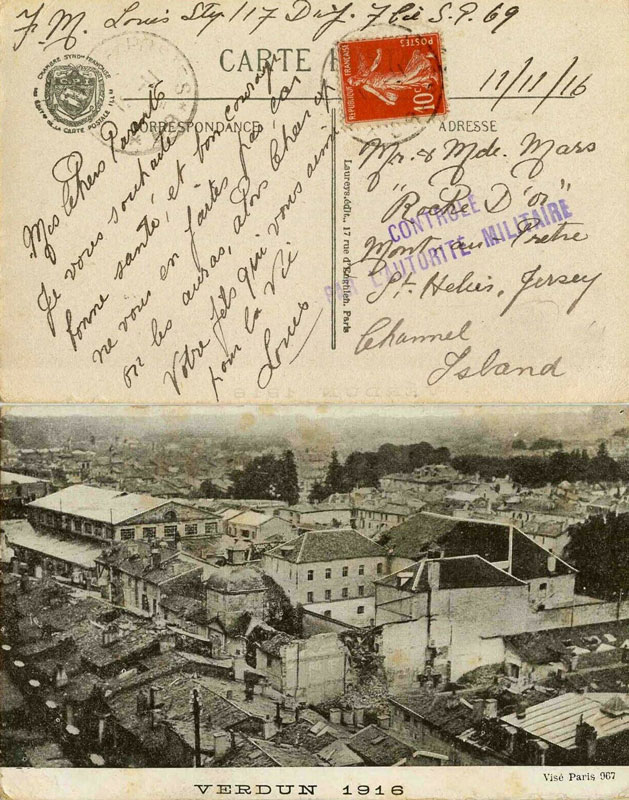 F. M. Louis Sty 117 D 7 Cie S.P. 69
CARTE
CHAMBRE SYND. FRANÇAISE
DE LA CARTE POSTALE ILL.
REPUBLIQUE FRANÇAISE
POSTES
10c
11/11/16
CORRESPONDANCE
ADRESSE
Mes Chers Parents
Je vous souhaite
bonne santé, et bon courage
ne vous en faites pas car
on les auras, alors
Votre fils qui vous aime
pour la Vie
Louis
Laureys, édit., 17 rue d'Enghien, Paris
Mr. & Mde. Mars
"Roche D'Or"
Mont au Prêtre
St. Helier, Jersey
Channel
Island
CONTRÔLÉ
PAR L'AUTORITÉ MILITAIRE
Visé Paris 967
VERDUN 1916